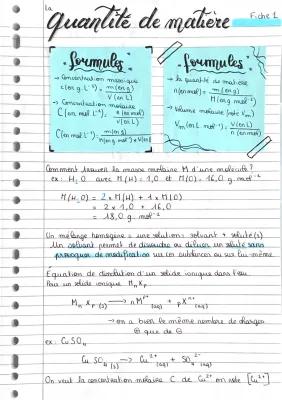 La
quantité de matière
Fiche 1
formules
→ Concentration massique
c (en g.L⁻¹) = m (en g) / V (en L)
→ Concentration molaire
C (en mol.L⁻¹) = n (en mol) / V (en L)
C (en mol.L⁻¹) = m (en g) / M (en g.mol⁻¹) × V (en L)
formules
→ la quantité de matière
n (en mol) = m (en g) / M (en g.mol⁻¹)
→ Volume molaire (noté Vm)
Vm (en L.mol⁻¹) = V (en L) / n (en mol)
Comment trouver la masse molaire M d'une molécule ?
ex : H₂O avec M(H) = 1,0 et M(O) = 16,0 g.mol⁻¹
M(H₂O) = 2 × M(H) + 1 × M(O)
= 2 × 1,0 + 16,0
= 18,0 g.mol⁻¹
Un mélange homogène = une solution : solvant + soluté(s)
Un solvant permet de dissoudre ou diluer un soluté sans
provoquer de modification sur ces substances ou sur lui-même
Équation de dissolution d'un solide ionique dans l'eau
Pour un solide ionique MnXp
MnXp (s) → n M^p+ (aq) + p X^n- (aq)
→ on a bien le même nombre de charges
⊕ que de ⊖
ex : CuSO₄
CuSO₄ (s) → Cu²⁺ (aq) + SO₄²⁻ (aq)
On veut la concentration molaire C de Cu²⁺ on note [Cu²⁺]